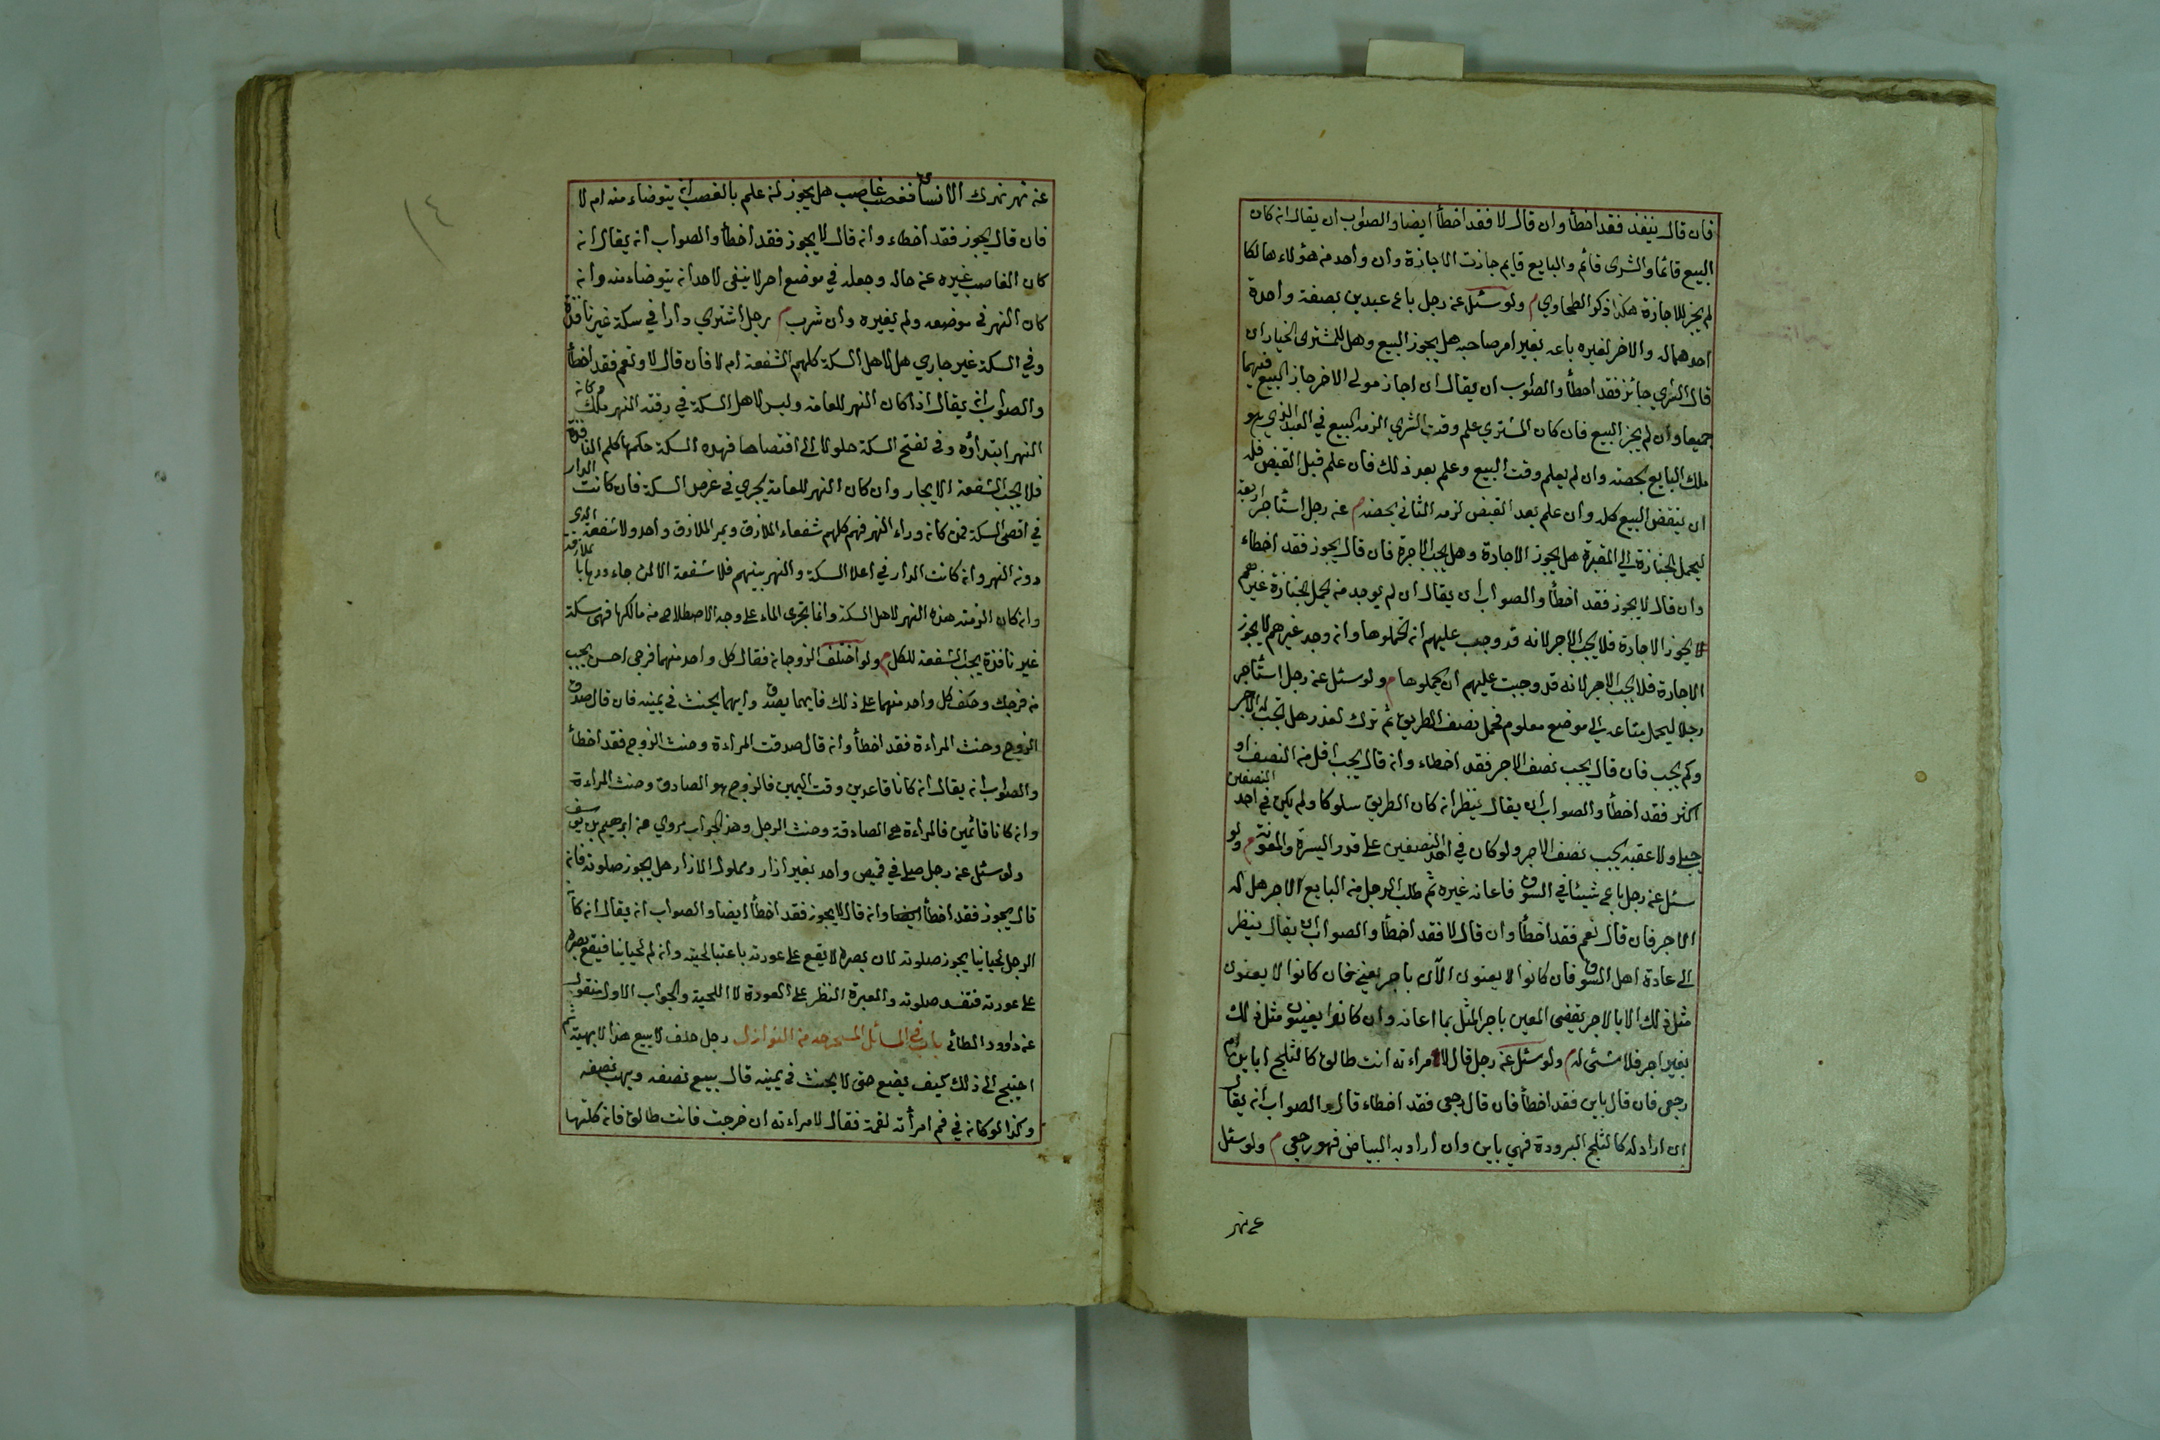 فان قال ينفذ فقد اخطأ وان قال لا فقد اخطأ ايضا والصواب ان يقال انه كان
البيع قائما والشرى قائم والبايع قايم جازت الاجازة وان واحد من هؤلاء هالكا
لم يجز للاجازة هكذا ذكر الطحاوي م ولو سئل عن رجل باع عبدين بصفقة واحدة
احدهما له والاخر لغيره باعه بغير امر صاحبه هل يجوز البيع وهل للمشترى الخيار ان
قال الشري جائز فقد اخطأ والصواب ان يقال ان اجاز مولى الاخر جاز البيع فيهما
جميعا وان لم يجز البيع فان كان المشتري علم وقت الشري الزمه البيع في العبد الذي هو
ملك البايع بحصته وان لم يعلم وقت البيع وعلم بعد ذلك فان علم قبل القبض فله
ان ينقض البيع كله وان علم بعد القبض لزمه الثاني بحصته م عن رجل استأجر اربعة
ليحمل الجنازة الى المقبرة هل يجوز الاجارة وهل يجب الاجرة فان قال يجوز فقد اخطاء
وان قال لا يجوز فقد اخطأ والصواب ان يقال ان لم يوجد من يحمل الجنازة غيرهم
لا يجوز الاجارة فلا يجب الاجر لانه قد وجب عليهم ان تحملوها وانه وجد غيرهم لا يجوز
الاجارة فلا يجب الاجر لانه قد وجبت عليهم ان يحملوها م ولو سئل عن رجل استأجر
رجلا ليحمل متاعه الى موضع معلوم فحمل نصف الطريق ثم ترك لعذر هل تجب له الاجر
وكم يجب فان قال يجب نصف الاجر فقد اخطاء وانه قال يجب اقل من النصف او
اكثر فقد اخطأ والصواب ان يقال ينظر انه كان الطريق سلوكا ولم يكن في احد النصفين
جبل ولا عقبة يجب نصف الاجر ولو كان في احد النصفين على قدر اليسرة والمعونة م ولو
سئل عن رجل باع شيئا في السوق فاعانه غيره ثم طلب الرجل من البايع الاجر هل له
الاجر فان قال نعم فقد اخطأ وان قال لا فقد اخطأ والصواب ان يقال ينظر
الى عادة اهل السوق فان كانوا لا يعنون الآن باجر يعني فان كانوا لا يعنون
مثل ذلك الا بالاجر يقضى المعين باجر المثل بما اعانه وان كانوا يعينون مثل ذلك
بغير اجر فلا شئى له م ولو سئل عن رجل قال لامراءته انت طالق كالثلج اباين ام
رجعى فان قال باين فقد اخطأ فان قال رجعى فقد اخطاء قال والصواب انه يقال
ان اراد له كالثلج البرودة فهي باين وان اراد به البياض فهو رجعي م ولو سئل
عن نهر
١٤
عنه نهر نهرك الانسان فغصب غاصب هل يجوز لمن علم بالغصب انه يتوضاء منه ام لا
فان قال يجوز فقد اخطاء وانه قال لا يجوز فقد اخطأ والصواب انه يقال انه
كان الغاصب غيره عن حاله وجعله في موضع اخر لا ينفى لاحد انه يتوضاء منه وانه
كان النهر في موضعه ولم يغيره وان شرب م رجل اشتري دارا في سكة غير نافذة
وفي السكة غير جاري هل لاهل السكة كلهم الشفعة ام لا فان قال لا ونعم فقد اخطأ
والصواب انه يقال اذا كان النهر للعامة وليس لاهل السكة في رقبة النهر ملك وكانه
النهر ابتدأوه وفي تفتح السكة حلولا الى اقتصاها فهذه السكة حكمها كلم النافذة
فلا يجب الشفعة الا بجار وان كان النهر للعامة يجري في عرض السكة فان كانت الدار
في اقصى السكة فمن كانه وراء النهر فهم كلهم شفعاء الملازق وبمر الملازق واحد ولا شفعة الذي
دونه النهر وانه كانت الدار في اعلا السكة والنهر بينهم فلا شفعة الا لمن جاء ورها باملازقة
وانه كان الزمته هذه النهر لاهل السكة وانما يجرى الماء على وجه الاصطلاح من مالكها فهى سكة
غير نافذة يجب الشفعة للكل م ولو اختلف الزوجانه فقال كل واحد منهما فرجى احسن يجيب
من فرجك وحلف كل واحد منهما على ذلك فايهما يصدق وايهما يحنث في يمينه فان قال صدق
الزوج وحنث المراءة فقد اخطأ وانه قال صدقت المراءة وحنث الزوج فقد اخطأ
والصواب انه يقال انه كانا قاعدين وقت اليمين فالزوج هو الصادق وحنث المراءة
وانه كانا قائمين فالمراءة هي الصادقة وحنث الرجل وهذ الجواب مروي عن ابرهيم بن يوسف
ولو سئل عن رجل صلى في قميص واحد بغير ازار ومحلول الازار هل يجوز صلوته فانه
قال يجوز فقد اخطأ ايضا وانه قال لا يجوز فقد اخطأ ايضا والصواب انه يقال انه كانه
الرجل لحيانيا يجوز صلوته لان بصره لا يقع على عورته باعتبا لحيته وانه لم لحيانيا فيقع بصره
على عورته فتفسد صلوته والمعبرة النظر على العورة لا اللحية والجواب الاول منقول
عن داوود الطائي باب في المسائل المستخرجه من النوازل رجل حلف لا يبيع هذا لا يهبه ثم
احتيج الى ذلك كيف يصنع حتى لا يحنث في يمينه قال يبيع نصفه ويهب نصفه
وكذا لو كانه في فم امرأته لقمة فقال لامراءته ان خرجت فانت طالق فانه كلتها